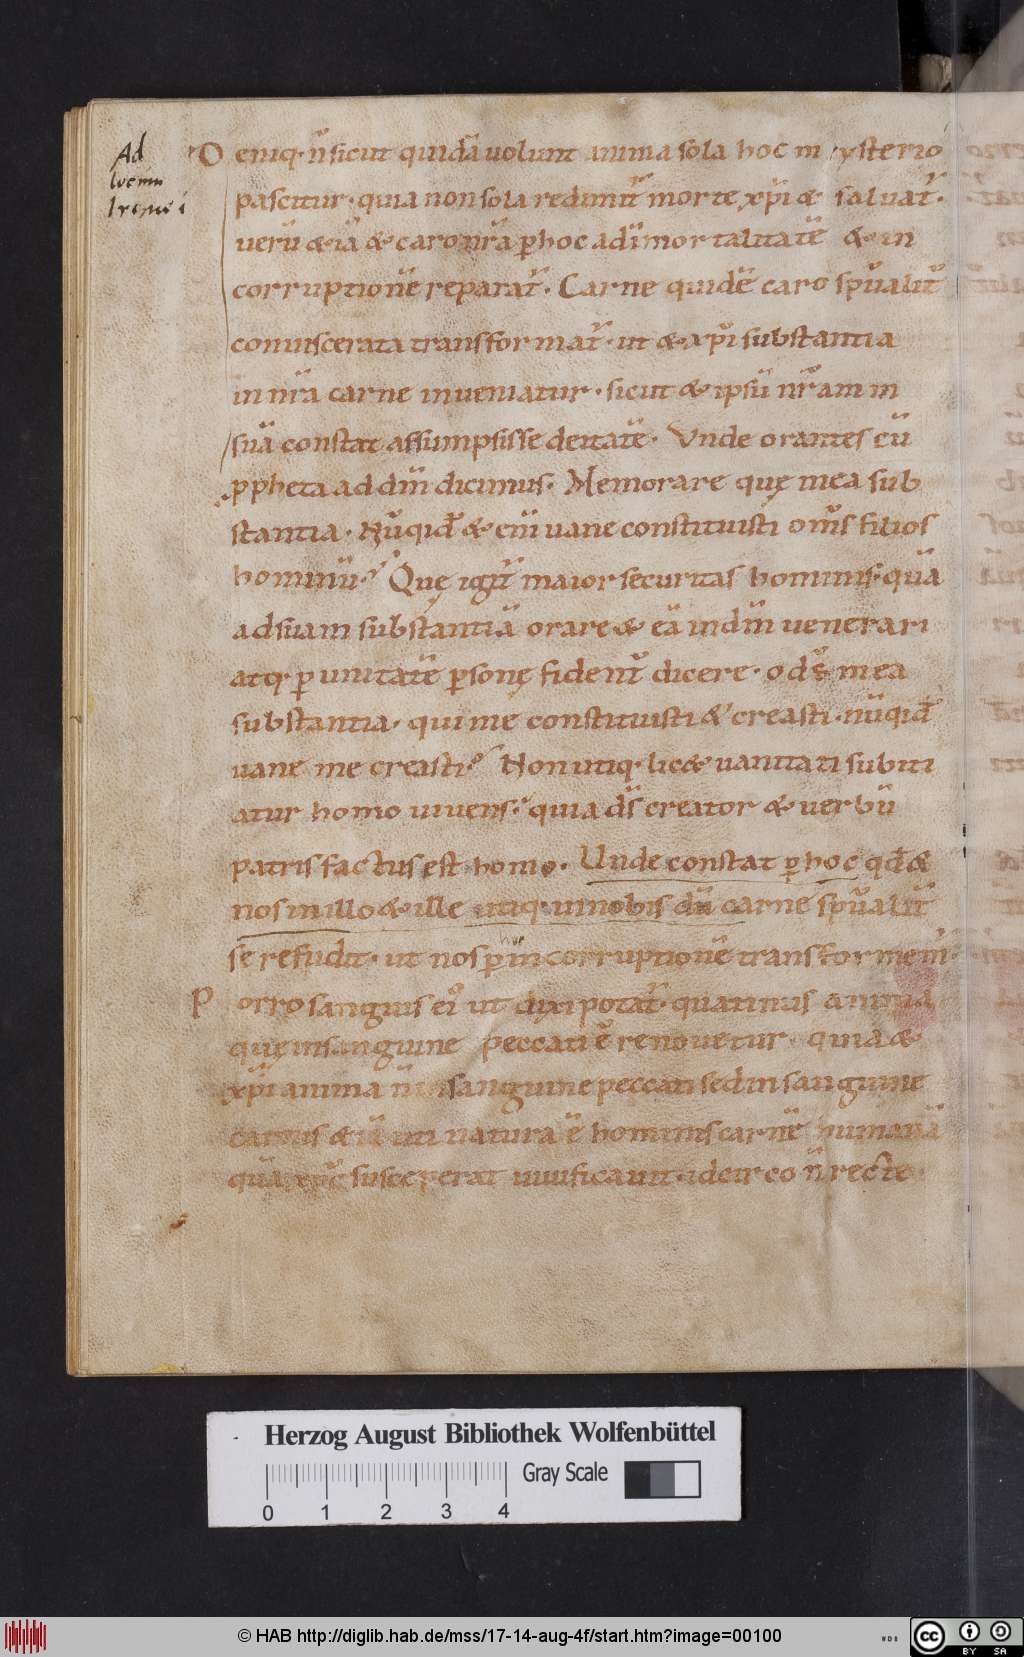 Ad
locum
Irenei
Deniq· n̄ sicut quidā uolunt anima sola hoc mysterio
pascitur· quia non sola redimit̄ morte xp̄i & saluat̄·
uerū & iā & caro nr̄a p̄ hoc ad īmortalitatē & in
corruptionē reparat̄· Carne quidē caro sp̄ualit̄
conuiscerata transformat̄· ut & xp̄i substantia
in nr̄a carne inueniatur· sicut & ipsū nr̄am in
suā constat assumpsisse deitatē· Vnde orantes cū
ppheta ad dm̄ dicimus· Memorare quę mea sub
stantia· Nūqid̄ & em̄ uane constituisti om̄s filios
hominū·? Quę igit̄ maior securitas hominis· quā
ad suam substantiā orare & eā in dm̄ uenerari
atq· p unitatē p̄sonę fident̄ dicere· o ds̄ mea
substantia· qui me constituisti & creasti· nūqid̄
uane me creasti? Non utiq· lic& uanitati subiti
atur homo uiuens· quia ds̄ creator & uerbū
patris factus est homo· Unde constat p̄ hoc qd̄ &
nos in illo & ille utiq· in nobis dū carne sp̄ualit̄
se refudit· ut nos p̄ hōc incorruptionē transformem̄·
Porro sanguis ei᾽ ut dixi potat̄· quatinus anima
quę in sanguine peccati ē renouetur· quia &
xp̄i anima n̄ in sanguine peccati sed in sanguine
carnis & iā uti natura ē hominis carnē humanā
quā xp̄c susceperat uiuificauit· idcirco n̄ recte
Herzog August Bibliothek Wolfenbüttel
0 1 2 3 4
Gray Scale
© HAB http://diglib.hab.de/mss/17-14-aug-4f/start.htm?image=00100
WDB
cc BY SA